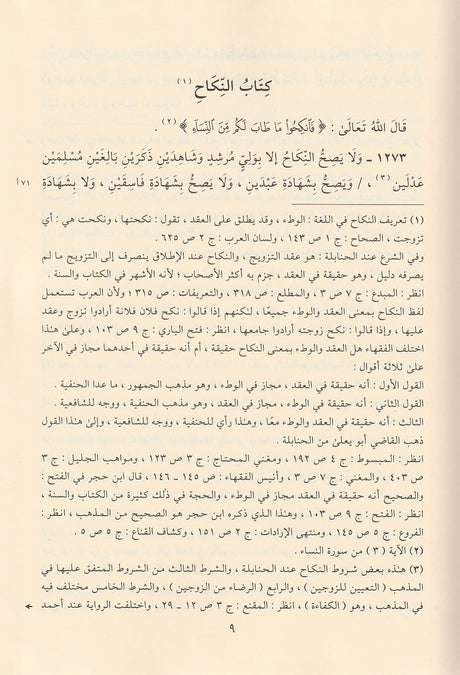 كِتَابُ النِّكَاحِ (١)
قَالَ اللهُ تَعَالَىٰ : ﴿ فَٱنكِحُوا۟ مَا طَابَ لَكُم مِّنَ ٱلنِّسَآءِ ﴾ (٢) .
١٢٧٣ ـ وَلَا يَصِحُّ النِّكَاحُ إلا بِوَلِيٍّ مُرشِدٍ وَشَاهِدَيْنِ ذَكَرَيْنِ بَالِغَيْنِ مُسْلِمَيْنِ
عَدْلَين (٣) ، / وَيَصِحُّ بِشَهَادَةِ عَبْدَينِ ، وَلَا يَصِحُّ بِشَهَادَةِ فَاسِقَيْنِ ، وَلَا بِشَهَادَةِ ٧١أ
(١) تعريف النكاح في اللغة : الوطء ، وقد يطلق على العقد ، تقول : نكحتها ، ونكحت هي : أي
تزوجت ، الصحاح : ج ١ ص ١٤٣ ، ولسان العرب : ج ٢ ص ٦٢٥ .
وفي الشرع عند الحنابلة : هو عقد التزويج ، والنكاح عند الإطلاق ينصرف إلى التزويج ما لم
يصرفه دليل ، وهو حقيقة في العقد ، جزم به أكثر الأصحاب ؛ لأنه الأشهر في الكتاب والسنة .
انظر : المبدع : ج ٧ ص ٣ ، والمطلع : ص ٣١٨ ، والتعريفات : ص ٣١٥ ؛ ولأن العرب تستعمل
لفظ النكاح بمعنى العقد والوطء جميعًا ، لكنهم إذا قالوا : نكح فلان فلانة أرادوا تزوج وعقد
عليها ، وإذا قالوا : نكح زوجته أرادوا جامعها ، انظر : فتح الباري : ج ٩ ص ١٠٣ ، وعلى هذا
اختلف الفقهاء هل العقد والوطء بمعنى النكاح حقيقة ، أم أنه حقيقة في أحدهما مجاز في الآخر
على ثلاثة أقوال :
القول الأول : أنه حقيقة في العقد ، مجاز في الوطء ، وهو مذهب الجمهور ، ما عدا الحنفية .
القول الثاني : أنه حقيقة في الوطء ، مجاز في العقد ، وهو مذهب الحنفية ، ووجه للشافعية .
الثالث : أنه حقيقة في العقد والوطء معًا ، وهذا رأي للحنفية ، ووجه للشافعية ، وإلى هذا القول
ذهب القاضي أبو يعلىٰ من الحنابلة .
انظر : المبسوط : ج ٤ ص ١٩٢ ، ومغني المحتاج : ج ٣ ص ١٢٣ ، ومواهب الجليل : ج ٣
ص ٤٠٣ ، والمغني : ج ٧ ص ٣ ، وأنيس الفقهاء : ص ١٤٥ ـ ١٤٦ ، قال ابن حجر في الفتح :
والصحيح أنه حقيقة في العقد مجاز في الوطء ، والحجة في ذلك كثيرة من الكتاب والسنة ،
انظر : الفتح : ج ٩ ص ١٠٣ ، وهذا الذي ذكره ابن حجر هو الصحيح من المذهب ، انظر :
الفروع : ج ٥ ص ١٤٥ ، ومنتهى الإرادات : ج ٢ ص ١٥١ ، وكشاف القناع : ج ٥ ص ٥ .
(٢) الآية ( ٣ ) من سورة النساء .
(٣) هذه بعض شروط النكاح عند الحنابلة ، والشرط الثالث من الشروط المتفق عليها في
المذهب ( التعيين للزوجين ) ، والرابع ( الرضاء من الزوجين ) ، والشرط الخامس مختلف فيه
في المذهب ، وهو ( الكفاءة ) ، انظر : المقنع : ج ٣ ص ١٢ ـ ٢٩ ، واختلفت الرواية عند أحمد
٩